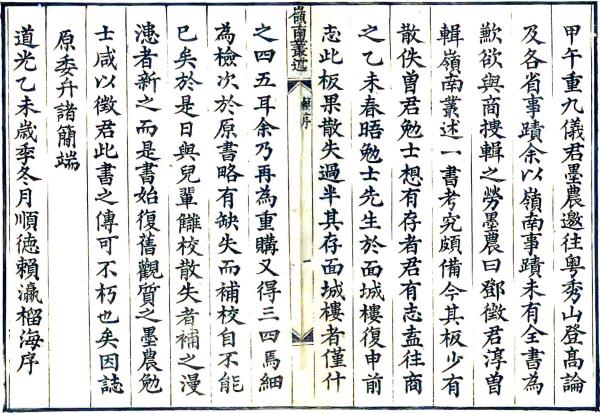 甲午重九儀君墨農邀往粤秀山登高論
及各省事蹟余以嶺南事蹟未有全書為
歉欲與商搜輯之勞墨農曰鄧徵君淳曽
輯嶺南叢述一書考究頗備今其板少有
散佚曽君勉士想有存者君有志盍往商
之乙未春晤勉士先生於面城樓復申前
志此板果散失過半其存面城樓者僅什
嶺南叢述
序
一
之四五耳余乃再為重購又得三四焉細
為檢次於原書略有缺失而補校自不能
已矣於是日與兒輩讎校散失者補之漫
漶者新之而是書始復舊觀質之墨農勉
士咸以徵君此書之傳可不朽也矣因誌
原委弁諸簡端
道光乙未歲季冬月順德賴瀛榴海序